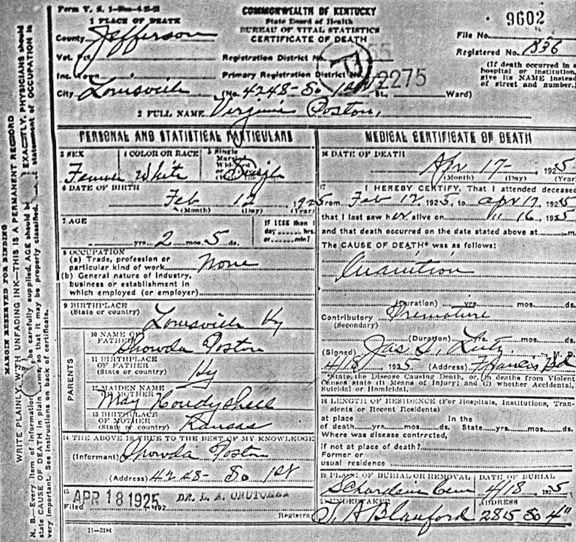 Form V. S. 1-
COMMONWEALTH OF KENTUCKY
State Board of Health
BUREAU OF VITAL STATISTICS
CERTIFICATE OF DEATH
1 PLACE OF DEATH
County Jefferson
File No. 9602
Registered No. 1836
Vot. Pct.
Registration District No.
Inc.
Primary Registration District No. 2275
(If death occurred in a hospital or institution, give its NAME instead of street and number.)
City Louisville (No. 4248- So 1st St., Ward)
2 FULL NAME Virginia Poston,
PERSONAL AND STATISTICAL PARTICULARS
3 SEX Female
4 COLOR OR RACE White
5 Single Married Widowed or Divorced Single
6 DATE OF BIRTH
Feb 12 1925
(Month) (Day) (Year)
7 AGE
yrs. 2 mos. 5 ds.
IF LESS than 1 day, hrs. or min?
8 OCCUPATION
(a) Trade, profession or particular kind of work None
(b) General nature of Industry, business or establishment in which employed (or employer)
9 BIRTHPLACE
(State or country)
Louisville Ky
PARENTS
10 NAME OF FATHER
Poston
11 BIRTHPLACE OF FATHER
(State or country)
Ky
12 MAIDEN NAME OF MOTHER
May
13 BIRTHPLACE OF MOTHER
(State or country)
Kansas
14 THE ABOVE IS TRUE TO THE BEST OF MY KNOWLEDGE
(Informant) Poston
(Address) 4248- So 1st
15
Filed APR 18 1925 DR. L. A.
Registrar
11-3194
MEDICAL CERTIFICATE OF DEATH
16 DATE OF DEATH
Apr 17- 1925
(Month) (Day) (Year)
17 I HEREBY CERTIFY, That I attended deceased
from Feb 12 1925, to Apr 17, 1925
that I last saw her alive on 16, 1925
and that death occurred on the date stated above at m.
The CAUSE OF DEATH* was as follows:
Inanition
(Duration) yrs. mos. ds.
Contributory Premature
(Secondary)
(Duration) yrs. mos. ds.
(Signed) Jas. S. Lutz
4/18 1925 (Address) Francis Bld
*State the Disease Causing Death, or, in deaths from Violent Causes state (1) Means of Injury; and (2) whether Accidental, Suicidal or Homicidal.
18 LENGTH OF RESIDENCE (For Hospitals, Institutions, Transients or Recent Residents)
At place of death yrs. mos. ds. In the State yrs. mos. ds.
Where was disease contracted,
if not at place of death?
Former or
usual residence
19 PLACE OF BURIAL OR REMOVAL
DATE OF BURIAL
Cem 4/18 1925
20 UNDERTAKER
ADDRESS
Blanford 2815 So 4"
MARGIN RESERVED FOR BINDING
WRITE PLAINLY, WITH UNFADING INK—THIS IS A PERMANENT RECORD
N. B.—Every item of information should be carefully supplied. AGE should be stated EXACTLY. PHYSICIANS should
state CAUSE OF DEATH in plain terms, so that it may be properly classified. Exact statement of OCCUPATION is
very important. See instructions on back of certificate.